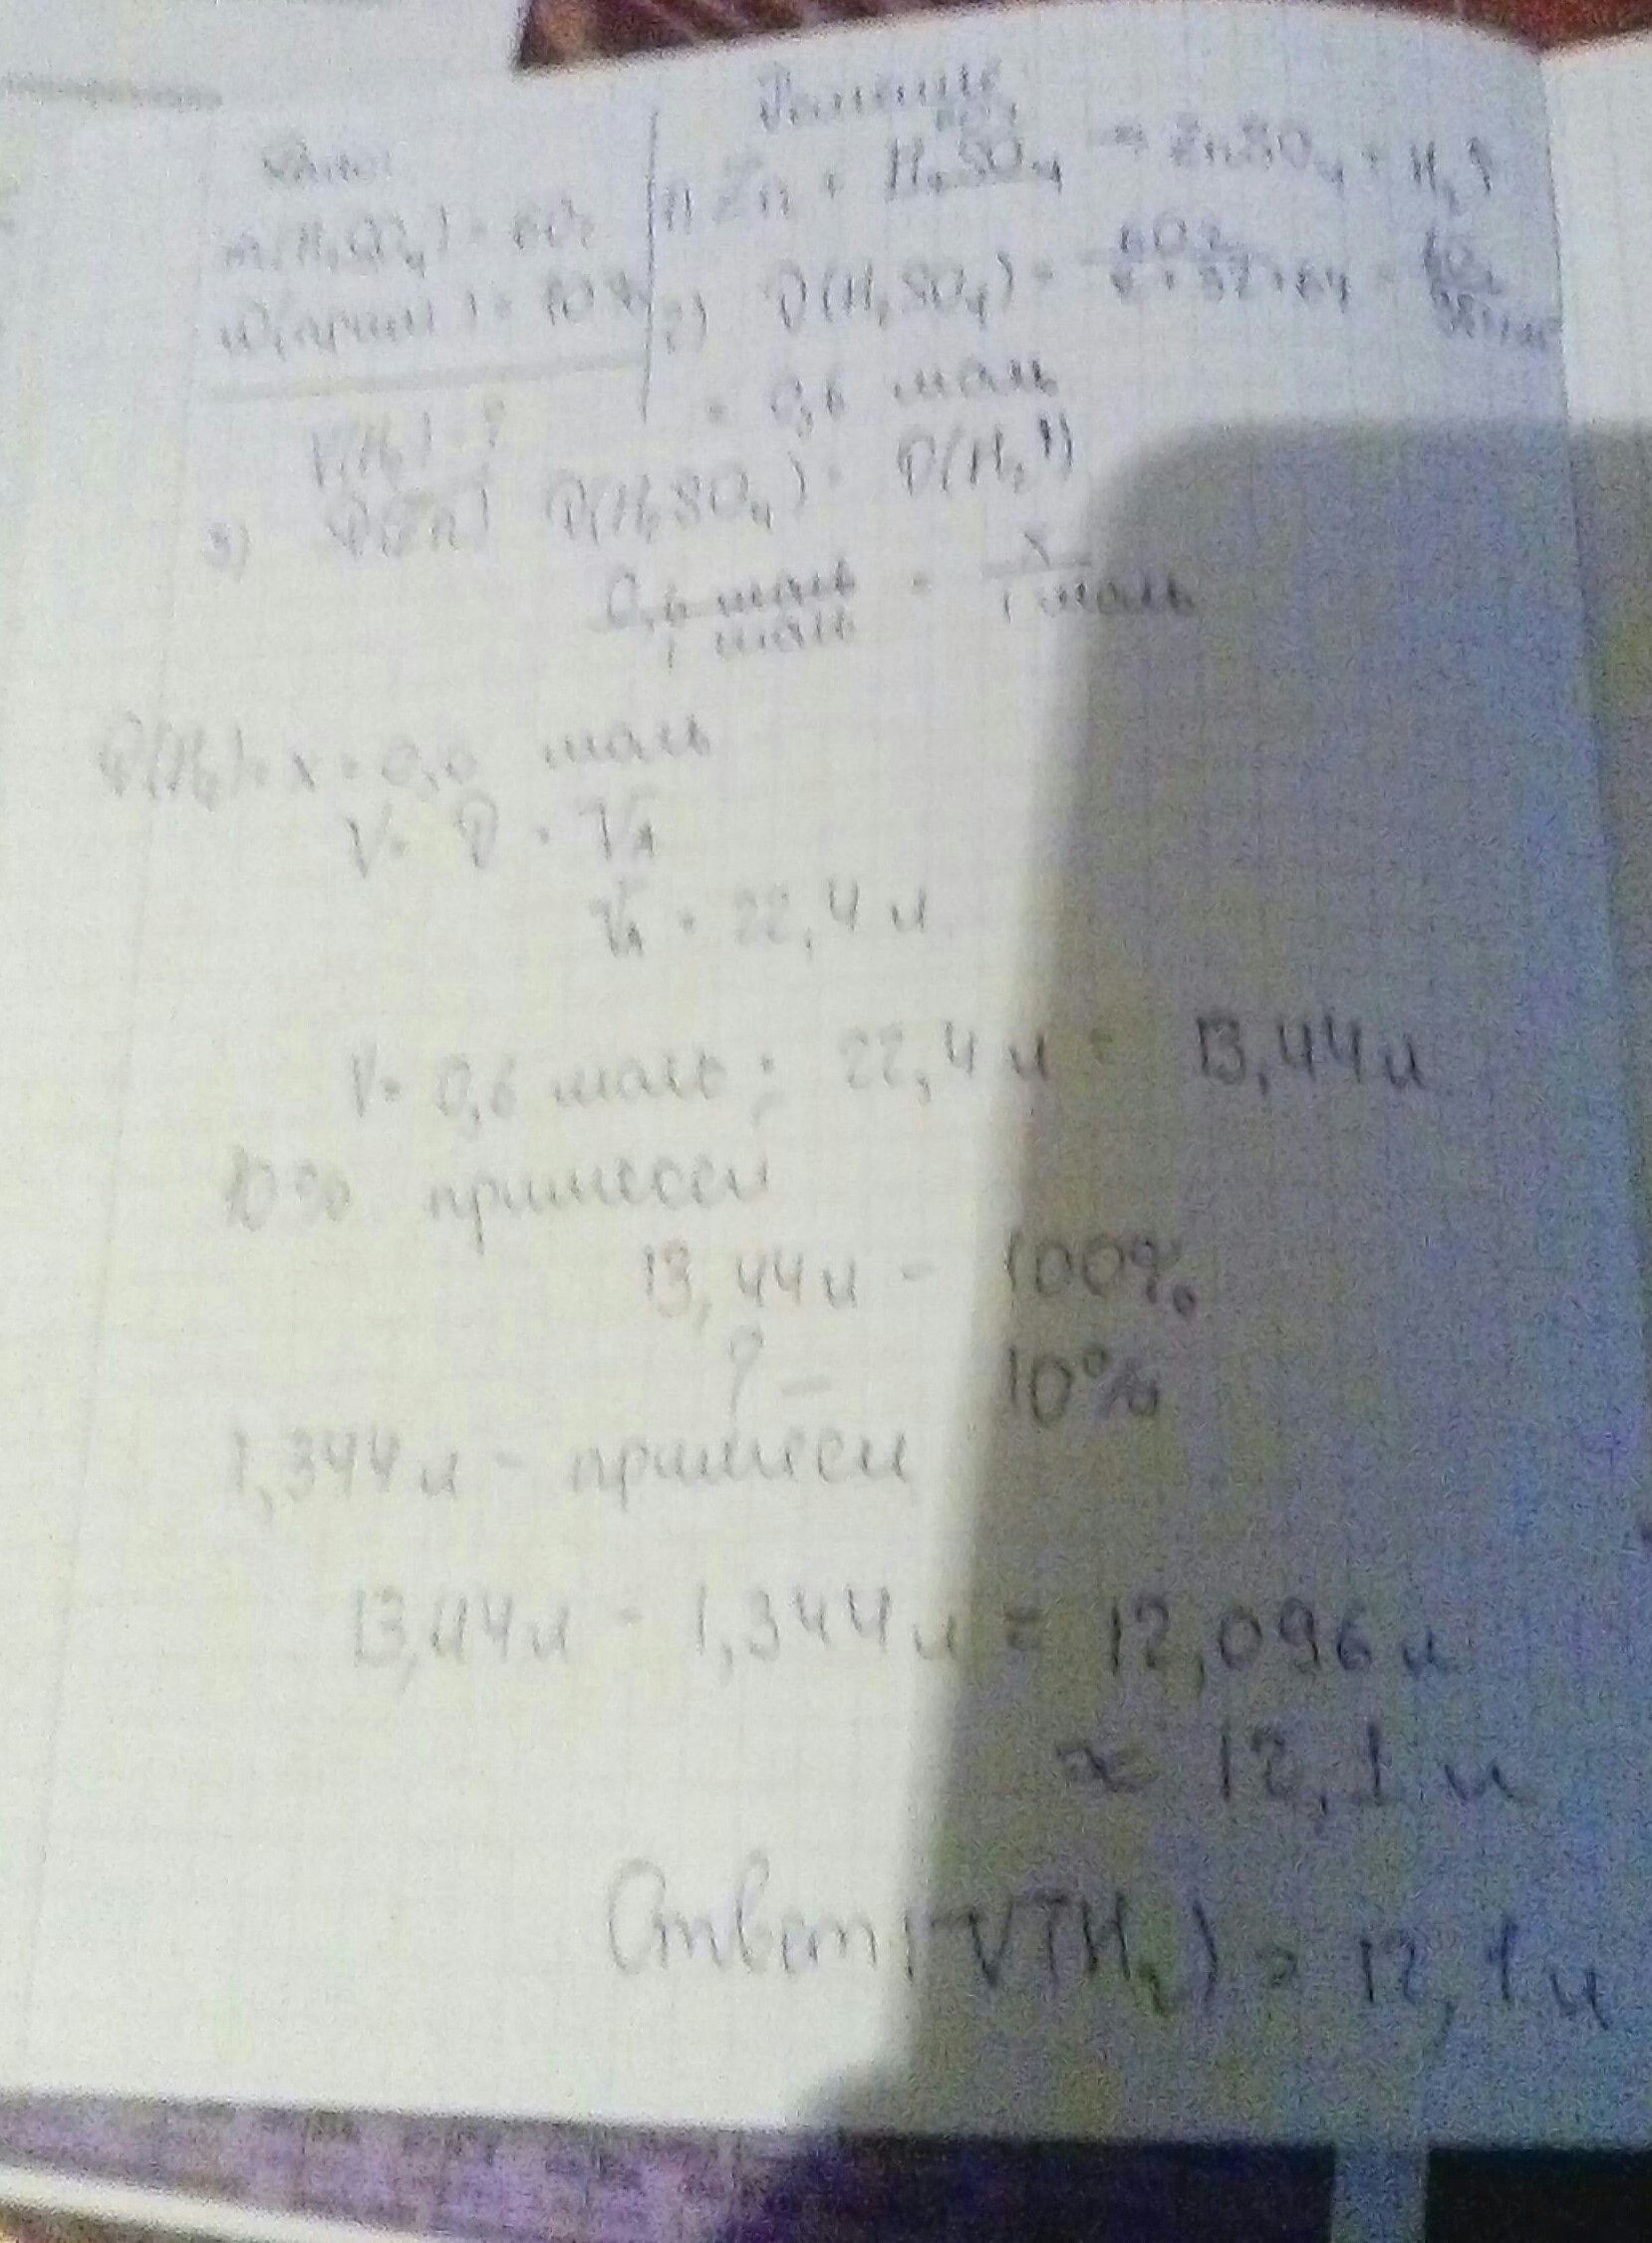 Дано:
m(H₂SO₄) = 60г
W(прим) = 10%
V(H₂) - ?
Решение
60г
1) Zn + H₂SO₄ → ZnSO₄ + H₂↑
2) ν(H₂SO₄) = 60г / 2+32+64 = 60г /
= 0,6 моль
3) ν(Zn) ν(H₂SO₄) = ν(H₂↑)
0,6 моль / 1 моль = x / 1 моль
ν(H₂) = x = 0,6 моль
V = ν · Vₙ
Vₙ = 22,4 л
V = 0,6 моль · 22,4 л = 13,44 л
10% примеси
13,44 л - 100%
? - 10%
1,344 л - примеси
13,44 л - 1,344 л = 12,096 л
≈ 12,1 л
Ответ: V(H₂) = 12,1 л